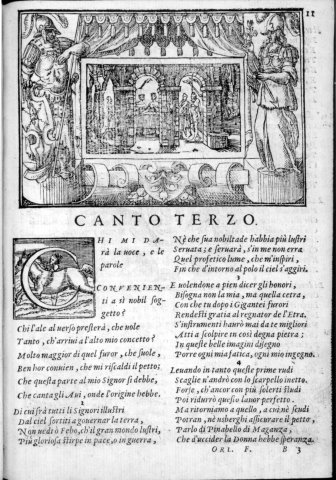 11
CANTO TERZO.
CHI MI DA-
rà la uoce, e le
parole
CONVENIEN-
ti a sì nobil sog-
getto?
Chi l'ale al uerso presterà, che uole
Tanto, ch'arriui a l'alto mio concetto?
Molto maggior di quel furor, che suole,
Ben hor conuien, che mi riscaldi il petto;
Che questa parte al mio Signor si debbe,
Che canta gli Aui, onde l'origine hebbe.
2
Di cui fra tutti li Signori illustri
Dal ciel sortiti a gouernar la terra,
Non uedi ò Febo, ch'il gran mondo lustri,
Più gloriosa stirpe in pace, o in guerra,
Nè che sua nobiltade habbia più lustri
Seruata; e seruarà, s'in me non erra
Quel profetico lume, che m'inspiri,
Fin che d'intorno al polo il ciel s'aggiri.
3
E uolendone a pien dicer gli honori,
Bisogna non la mia, ma quella cetra,
Con che tu dopo i Gigantei furori
Rendesti gratia al regnator de l'Etra.
S'instrumenti haurò mai da te migliori
Atti a scolpire in così degna pietra;
In queste belle imagini disegno
Porre ogni mia fatica, ogni mio ingegno.
4
Leuando in tanto queste prime rudi
Scaglie n'andrò con lo scarpello inetto.
Forse, ch'ancor con più solerti studi
Poi ridurrò questo lauor perfetto.
Ma ritorniamo a quello, a cui nè scudi
Potran, nè usberghi assicurare il petto;
Parlo di Pinabello di Maganza,
Che d'uccider la Donna hebbe speranza.
ORL. F. B 3